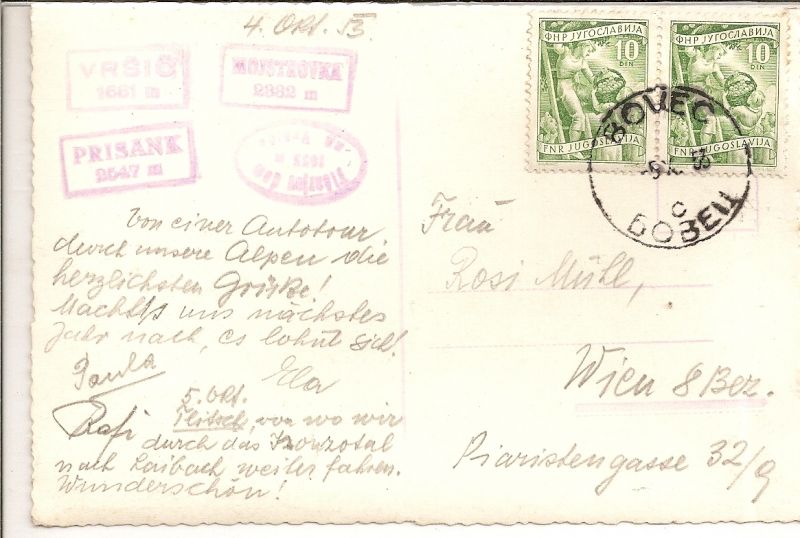 4. Okt. 53.
VRŠIČ
1661 m
MOJSTROVKA
2332 m
PRISANK
2547 m
Tičarjev dom
na Vršiču
ФНР ЈУГОСЛАВИЈА
10
DIN
FNR JUGOSLAVIJA
ФНР ЈУГОСЛАВИЈА
10
DIN
FNR JUGOSLAVIJA
BOVEC
C
БОВЕЦ
Von einer Autotour
durch unsere Alpen die
herzlichsten Grüße!
Macht's uns nächstes
Jahr nach, es lohnt sich!
Paula
Ela
Rafi
5. Okt.
Flitsch, von wo wir
durch das Isonzotal
nach Laibach weiter fahren.
Wunderschön!
Frau
Rosi Mühl,
Wien 8 Bez.
Piaristengasse 32/9